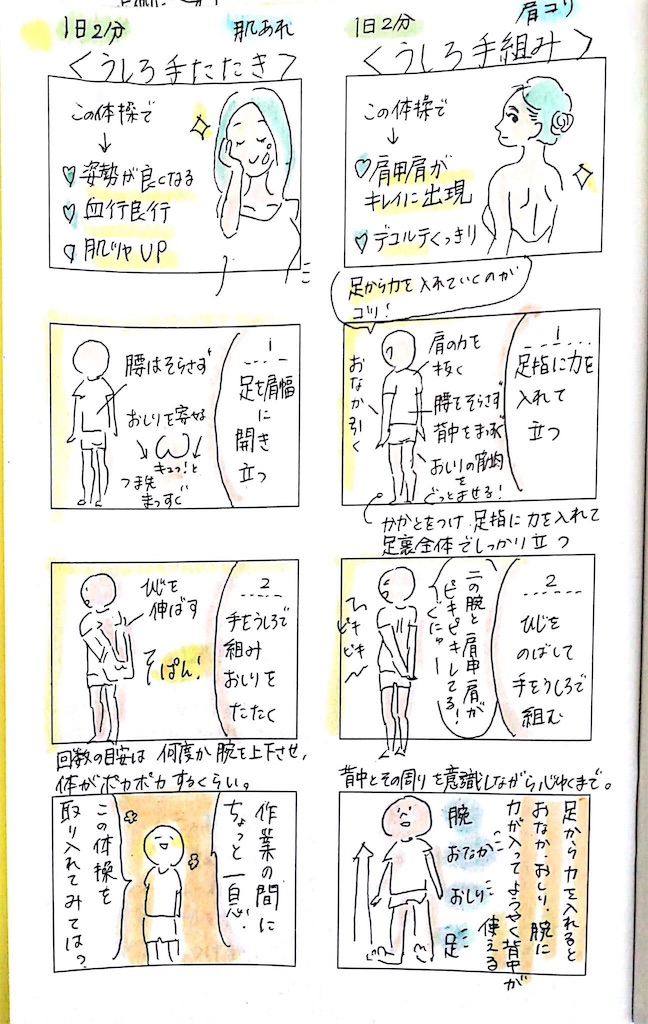 1日2分
肩コリ
<うしろ手組み>
この体操で
↓
♡肩甲肩が
キレイに出現
♡デコルテくっきり
足から力を入れていくのが
コツ!
1
足指に力を
入れて
立つ
肩の力を
抜く
腰をそらさず
背中をまっすぐ
おしりの筋肉を
ぐっとませる!
おなか引く
かかとをつけ足指に力を入れて
足裏全体でしっかり立つ
2
ひじを
のばして
手をうしろで
組む
二の腕と肩甲肩が
ピキピキしてる!
ぐにゅー
ピキ
ピキ
背中とその周りを意識しながら心ゆくまで。
足から力を入れると
おなか、おしり、腕に
力が入ってようやく背中が
使える
腕
おなか
おしり
足
1日2分
肌あれ
<うしろ手たたき>
この体操で
↓
♡姿勢が良くなる
♡血行良行
♡肌ツヤUP
1
足を肩幅
に
開き
立つ
腰はそらさず
おしりを寄せる
キュッ!と
つま先
まっすぐ
2
手をうしろで
組み
おしりを
たたく
ひじを
伸ばす
そぱん!
回数の目安は何度か腕を上下させ、
体がポカポカするくらい。
作業の間に
ちょっと一息、
この体操を
取り入れてみては?